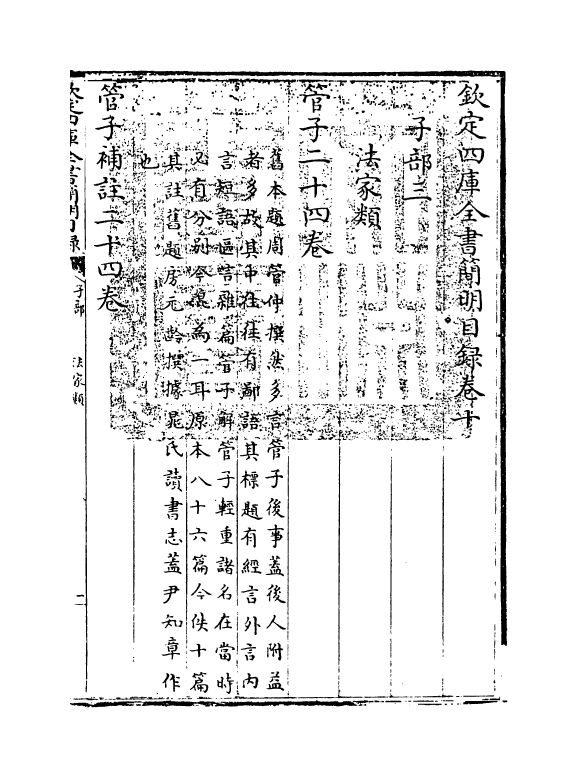 欽定四庫全書簡明目録卷十
子部三
法家類
管子二十四卷
舊本題周管仲撰然多言管子後事蓋後人附益
者多故其中往往有鄙語其標題有經言外言内
言短語區言雜篇管子解管子輕重諸名在當時
必有分别今混為一耳原本八十六篇今佚十篇
其註舊題房元齡撰據晁氏讀書志蓋尹知章作
也
管子補註二十四卷
欽定四庫全書簡明目録
子部 法家類
二